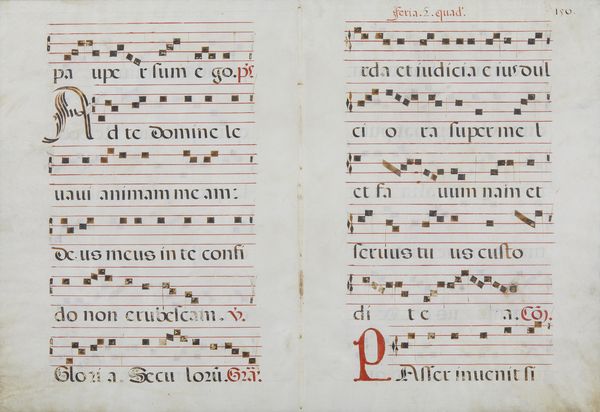 pa upe r sum e go. ps
Ad te domine le
uaui animam me am:
de us meus in te confi
do non erubescam. V.
Glori a. Secu loru. Gra.
feria. 2. quad.
190.
rda et iudicia e ius dul
ci o ra super me l
et fa uum nam et
seruus tu us custo
di t e a. Co.
PAsser inuenit si